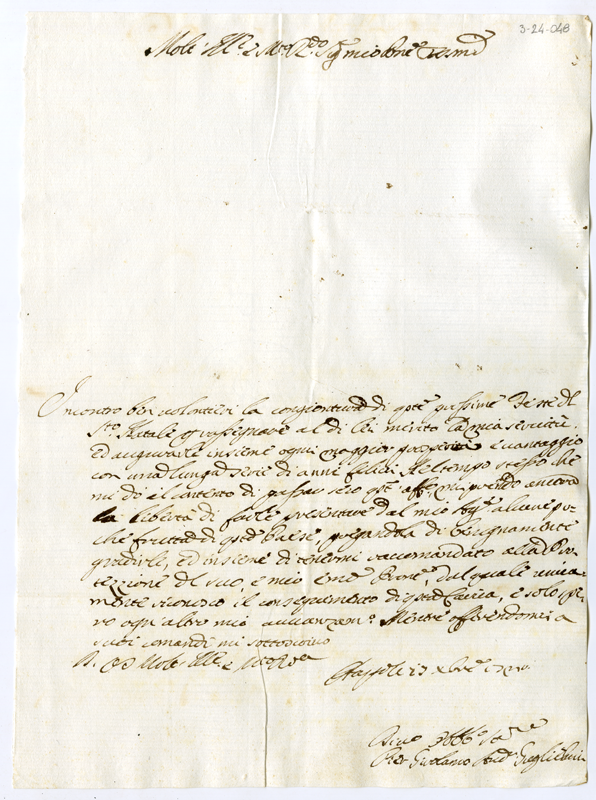 3-24-048
Molto Ill.e e M.to R.do Sig.r mio Pron.e
Incontro ben volontieri la congiontura di q.te prossime Feste del
S.to Natale p rassegnare al di lei merito la mia servitù
ed augurarle insieme ogni maggior prosperità e vantaggio
con una lunga serie di anni felici. Nel tempo stesso che
mi do il contento di passar seco q.to prendo ancora
la libertà di farle presentare dal mio alcune po-
che frutta di q.to Paese, pregandola di benignamente
gradirle, ed insieme di tenermi raccomandato alla Pro-
tezzione del suo, e mio Pron.e, dal quale unica-
mente riconosco il conseguimento di e solo spe-
ro ogn'altro mio avanzam.o Mentre offerendomi a
suoi comandi mi sottoscrivo
Molto Ill.e e M.to R.da
Napoli
Obb.o Ser.re
Girolamo